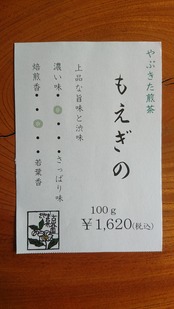 やぶきた煎茶
もえぎの
100g
￥1,620(税込)
上品な旨味と渋味
濃い味・・・・・さっぱり味
焙煎香・・・・・若葉香